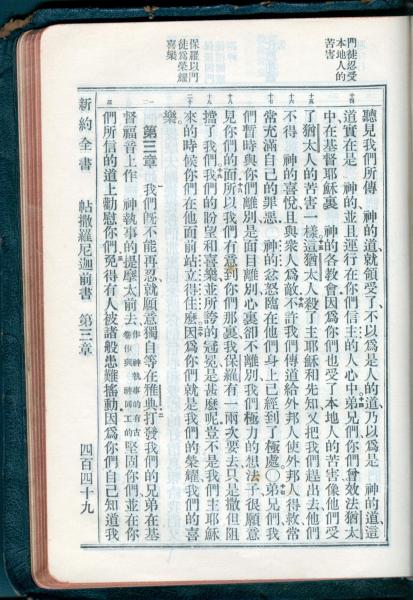 門徒忍受
本地人的
苦害
保羅以門
徒為榮耀
喜樂
聽見我們所傳 神的道就領受了不以為是人的道乃以為是 神的道這
道實在是 神的並且運行在你們信主的人心中弟兄們你們曾效法猶太
中在基督耶穌裏 神的各教會因為你們也受了本地人的苦害像他們受
了猶太人的苦害一樣這猶太人殺了主耶穌和先知又把我們趕出去他們
不得 神的喜悅且與眾人為敵不許我們傳道給外邦人使外邦人得救常
常充滿自己的罪惡 神的忿怒臨在他們身上已經到了極處〇弟兄們我
們暫時與你們離別是面目離別心裏卻不離別我們極力的想法子很願意
見你們的面所以我們有意到你們那裏我保羅有一兩次要去只是撒但阻
擋了我們我們的盼望和喜樂並所誇的冠冕是甚麼呢豈不是我們主耶穌
來的時候你們在他面前站立得住麼因為你們就是我們的榮耀我們的喜
樂
第三章 我們既不能再忍就願意獨自等在雅典打發我們的兄弟在基
督福音上作 神執事的提摩太前去作 神執事的有古卷作與神同工的堅固你們並在你
們所信的道上勸慰你們免得有人被諸般患難搖動因為你們自己知道我
新約全書 帖撒羅尼迦前書 第三章 四百四十九